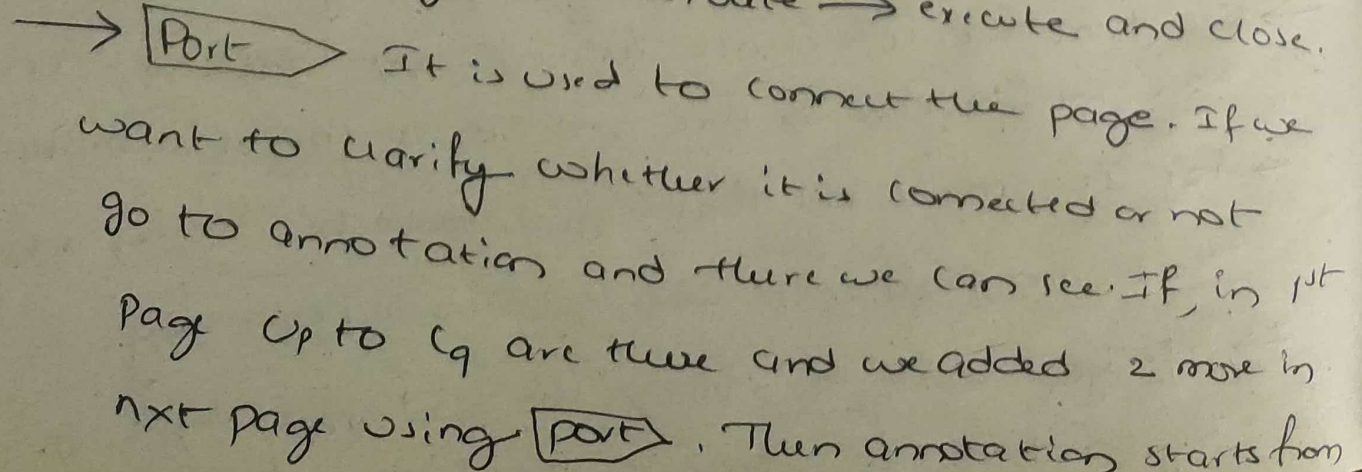 → execute and close.
→ Port It is used to connect the page. If we
want to clarify whether it is connected or not
go to annotation and there we can see. If, in 1st
Page Up to C9 are there and we added 2 more in
nxt page using port. Then annotation starts from